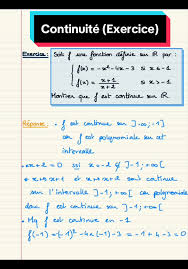 Continuité (Exercice)
Exercice: Soit f une fonction définie sur ℝ par :
f(x) = -x² - 4x - 3 si x ≤ -1
f(x) = x+1 / x+2 si x > -1
Montrer que f est continue sur ℝ
Réponse: • f est continue sur ]-∞; -1[
car f est polynomiale sur cet
intervalle
• x+2 = 0 ssi x = -2 ∉ ]-1; +∞[
x ↦ x+1 et x ↦ x+2 sont continue
sur l'intervalle ]-1; +∞[ car polynomiale
donc f est continue sur ]-1; +∞[
• Mq f est continue en -1
f(-1) = -(-1)² - 4x(-1) - 3 = -1 + 4 - 3 = 0